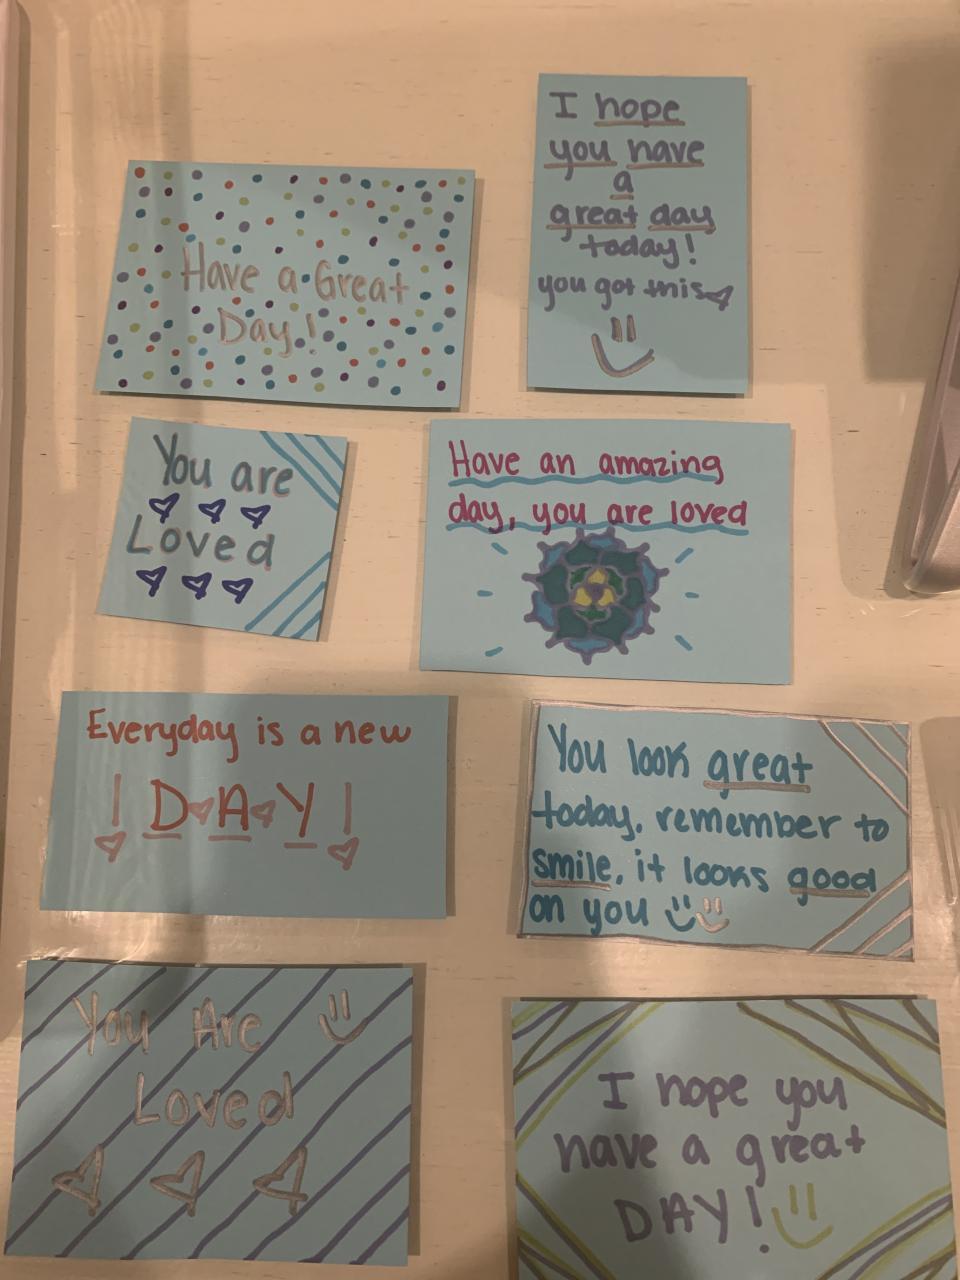 Have a Great
Day!
I hope
you have
a
great day
today!
you got this
You are
Loved
Have an amazing
day, you are loved
Everyday is a new
! DAY !
You look great
today, remember to
smile, it looks good
on you
You Are
Loved
I hope you
have a great
DAY!